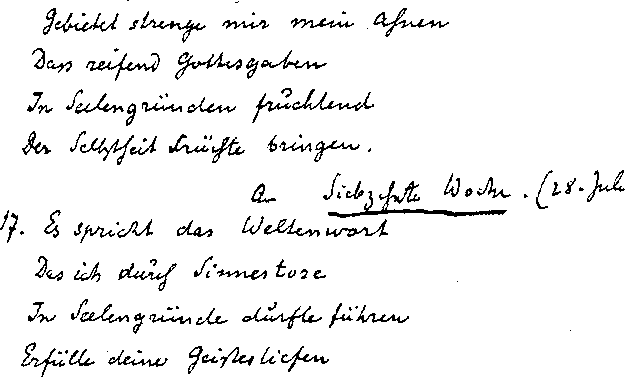 Gebietet strenge mir mein Ahnen
Dass reifend Gottesgaben
In Seelengründen fruchtend
Der Selbstheit Früchte bringen.
a Siebzehnte Woche. (28. Juli
17. Es spricht das Weltenwort
Das ich durch Sinnestore
In Seelengründe durfte führen
Erfülle deine Geistestiefen